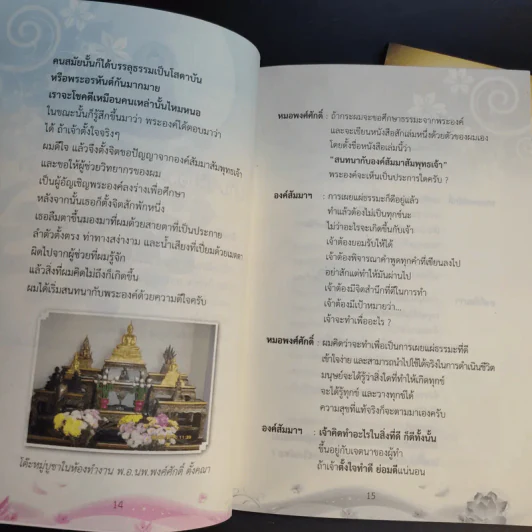 คนสมัยนั้นก็ได้บรรลุธรรมเป็นโสดาบัน
หรือพระอรหันต์กันมากมาย
เราจะโชคดีเหมือนคนเหล่านั้นไหมหนอ
ในขณะนั้นก็รู้สึกขึ้นมาว่า พระองค์ได้ตอบมาว่า
ได้ ถ้าเจ้าตั้งใจจริงๆ
ผมดีใจ แล้วจึงตั้งจิตขอปัญญาจากองค์สัมมาสัมพุทธเจ้า
และขอให้ผู้ช่วยวิทยากรของผม
เป็นผู้อัญเชิญพระองค์ลงร่างเพื่อศึกษา
หลังจากนั้นเธอก็ตั้งจิตสักพักหนึ่ง
เธอลืมตาขึ้นมองมาที่ผมด้วยสายตาที่เป็นประกาย
ลำตัวตั้งตรง ท่าทางสง่างาม และน้ำเสียงที่เปี่ยมด้วยเมตตา
ผิดไปจากผู้ช่วยที่ผมรู้จัก
แล้วสิ่งที่ผมคิดไม่ถึงก็เกิดขึ้น
ผมได้เริ่มสนทนากับพระองค์ด้วยความดีใจครับ
โต๊ะหมู่บูชาในห้องทำงาน พ.อ.นพ.พงศ์ศักดิ์ ตั้งคณา
14
หมอพงศ์ศักดิ์ : ถ้ากระผมจะขอศึกษาธรรมะจากพระองค์
และจะเขียนหนังสือสักเล่มหนึ่งด้วยตัวของผมเอง
โดยตั้งชื่อหนังสือเล่มนี้ว่า
"สนทนากับองค์สัมมาสัมพุทธเจ้า"
พระองค์จะเห็นเป็นประการใดครับ ?
องค์สัมมาฯ : การเผยแผ่ธรรมะก็ดีอยู่แล้ว
ทำแล้วต้องไม่เป็นทุกข์นะ
ไม่ว่าอะไรจะเกิดขึ้นกับเจ้า
เจ้าต้องยอมรับให้ได้
เจ้าต้องพิจารณาคำพูดทุกคำที่เขียนลงไป
อย่าสักแต่ทำให้มันผ่านไป
เจ้าต้องมีจิตสำนึกที่ดีในการทำ
เจ้าต้องมีเป้าหมายว่า...
เจ้าจะทำเพื่ออะไร ?
หมอพงศ์ศักดิ์ : ผมคิดว่าจะทำเพื่อเป็นการเผยแผ่ธรรมะที่ดี
เข้าใจง่าย และสามารถนำไปใช้ได้จริงในการดำเนินชีวิต
มนุษย์จะได้รู้ว่าสิ่งใดที่ทำให้เกิดทุกข์
จะได้รู้ทุกข์ และวางทุกข์ได้
ความสุขที่แท้จริงก็จะตามมาเองครับ
องค์สัมมาฯ : เจ้าคิดทำอะไรในสิ่งที่ดี ก็ดีทั้งนั้น
ขึ้นอยู่กับเจตนาของผู้ทำ
ถ้าเจ้าตั้งใจทำดี ย่อมดีแน่นอน
15